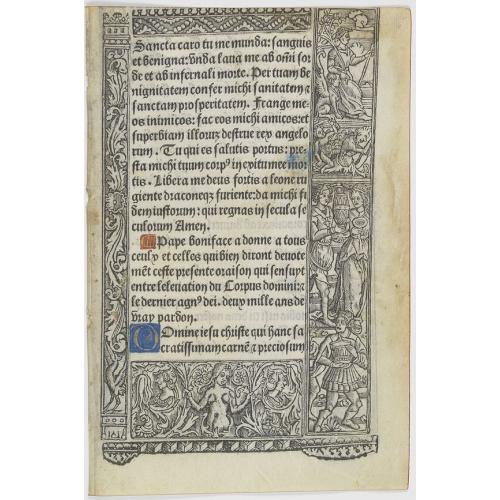 Sancta caro tu me munda: sanguis
et benigna: vnda laua me ab oīni sor
de et ab infernali morte. Per tuam be
nignitatem confer michi sanitatem ⁊
sanctam prosperitatem. Frange me
os inimicos: fac eos michi amicos: et
superbiam illoruꝫ destrue rex angelo
rum. Tu qui es salutis portus: pre
sta michi tuum corpꝰ in exitu mee mor
tis. Libera me deus fortis a leone ru
giente draconeqꝫ furiente: da michi fi
dem iustorum: qui regnas in secula se
culorum Amen.
Pape boniface a donne a tous
ceulx et celles qui bien diront deuote
mēt ceste presente oraison qui sensuyt
entre leleuation du Corpus domini: ⁊
le dernier agnꝰ dei. deux mille ans de
vray pardon.
Domine iesu christe qui hanc sa
cratissimam carnē ⁊ preciosum